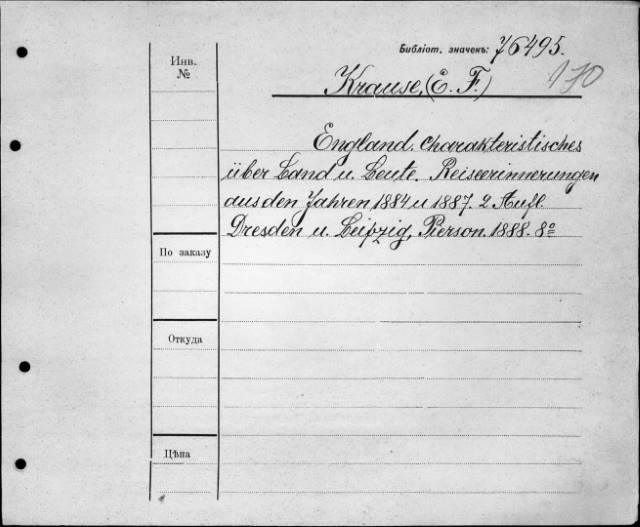 Библіот. значекъ: 76495.
Инв.
№
170
Krause, (E. F.)
England. Charakteristisches
über Land u. Leute. Reiseerinnerungen
aus den Jahren 1884 u 1887. 2 Aufl.
Dresden u. Leipzig, Pierson. 1888. 8º
По заказу
Откуда
Цѣна